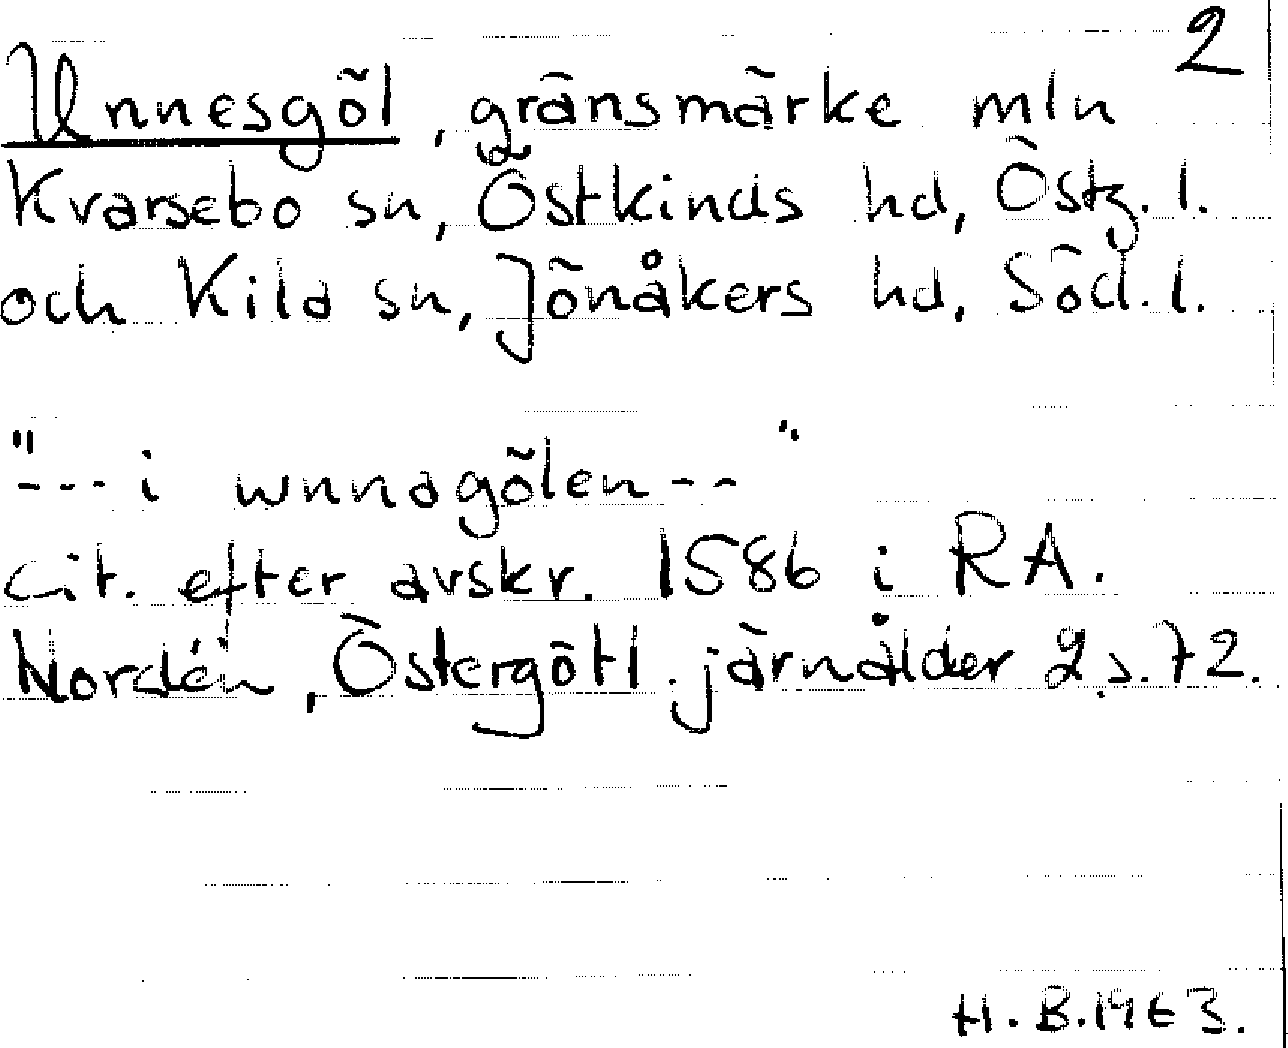 2
Unnesgöl, gränsmärke mln
Kvarsebo sn, Östkinds hd, Östg. l.
och Kila sn, Jönåkers hd, Söd. l.
"--- i wnnagölen -- "
cit. efter avskr. 1586 i RA.
Nordén, Östergötl. järnålder 2 s. 72.
H. B. 1963.